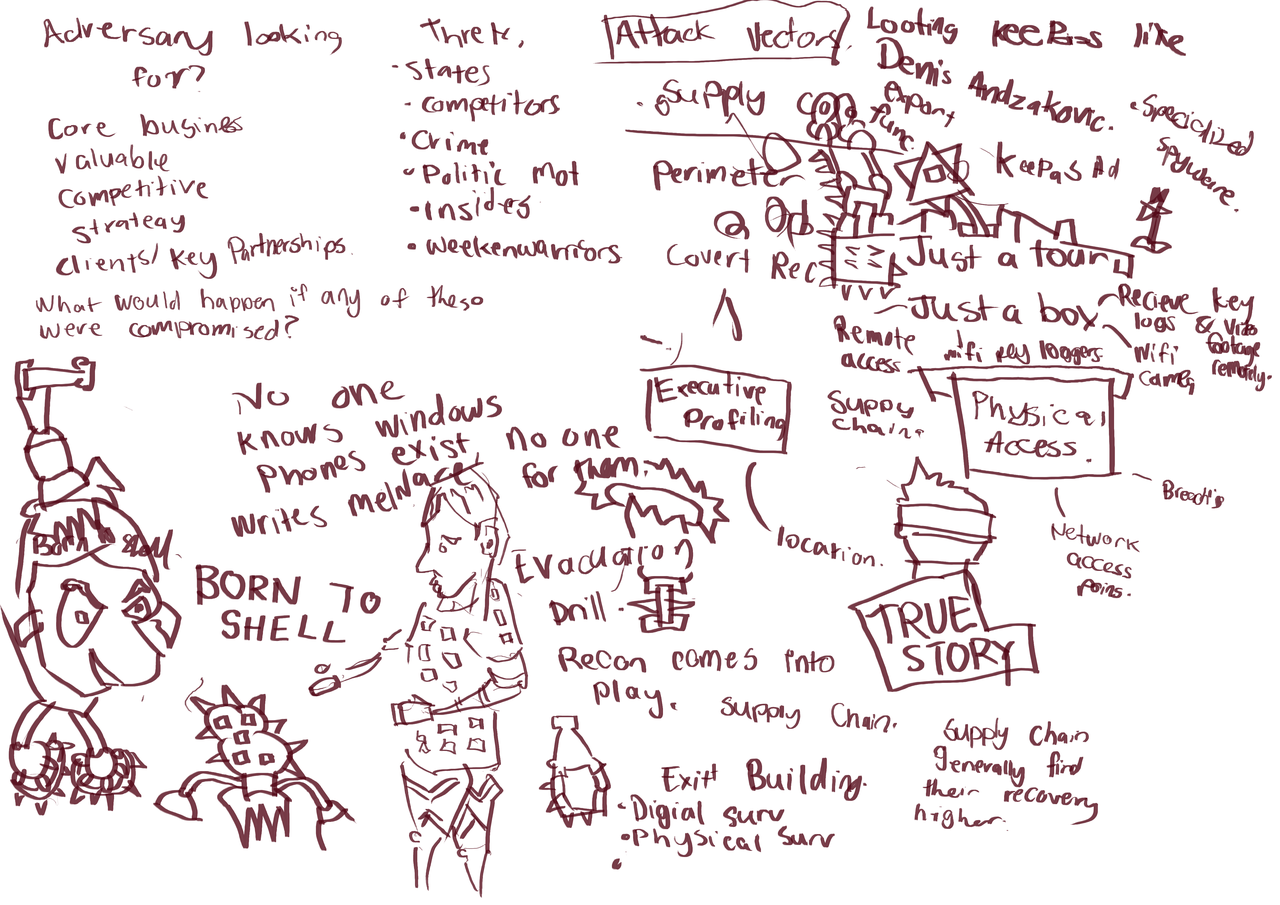 Adversary looking
for?
Core business
valuable
competitive
strategy
clients/ Key Partnerships.
What would happen if any of these
were compromised?
Threts,
• States
• competitors
• Crime
• Politic Mot
• Insiders
• weekenwarriors
Attack Vectors.
• Supply
Perimeter
Op
Covert Rec
Looting KeePass like
Denis Andzakovic.
export
func.
KeePass Ad
• Specialized
spyware.
Just a tour
Just a box
Recieve key
logs & vizo
footage
remotely.
Remote
access
wifi key loggers
Wifi
camera
Supply
chain.
Physical
Access.
Network
access
poins.
Executive
Profiling
location.
No one
knows windows
phones exist no one
writes melware for them.
Born to shell
BORN TO
SHELL
Evacuation
Drill.
Recon comes into
play. Supply Chain.
Exit Building.
• Digial surv
• Physical surv
TRUE
STORY
Supply Chain
generally find
their recovery
higher.